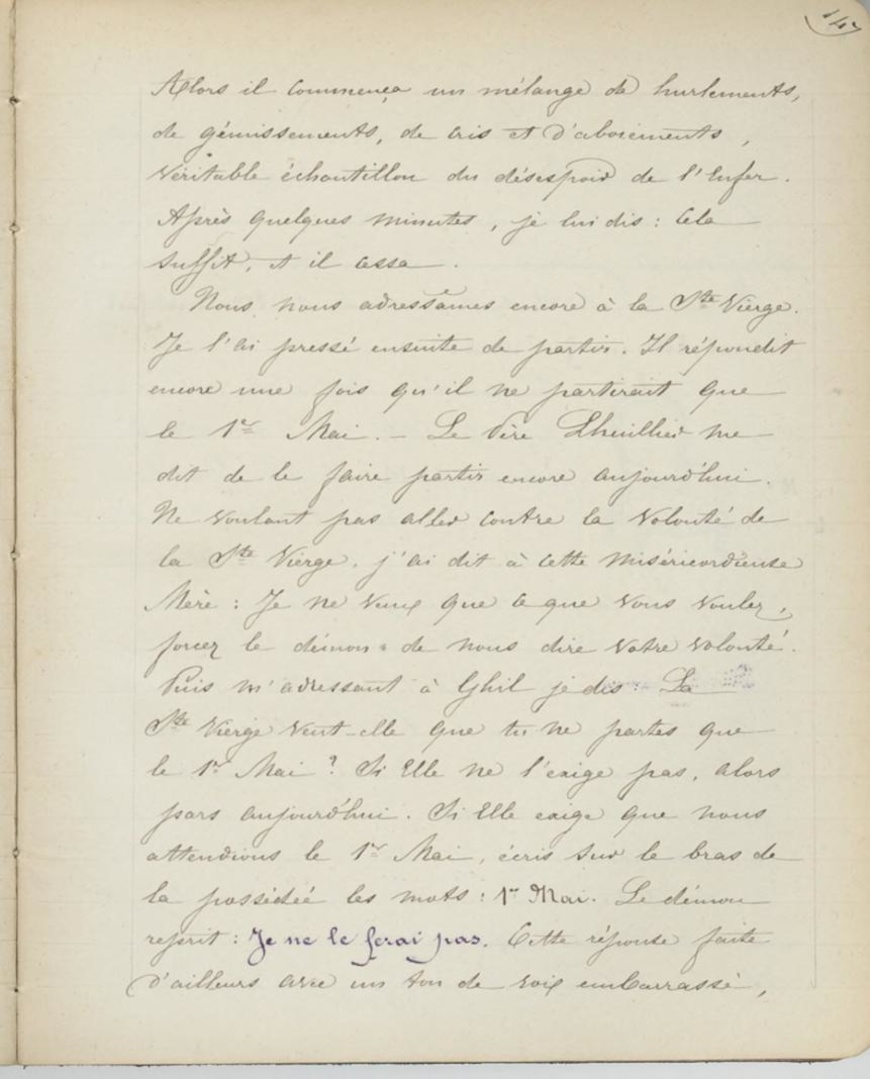 147
Alors il commença un mélange de hurlements,
de gémissements, de cris et d'aboiements,
véritable échantillon du désespoir de l'Enfer.
Après quelques minutes, je lui dis : Cela
suffit, et il cessa.
Nous nous adressâmes encore à la Ste Vierge.
Je l'ai pressé ensuite de partir. Il répondit
encore une fois qu'il ne partirait que
le 1er Mai. – Le Père Lhuillier me
dit de le faire partir encore aujourd'hui.
Ne voulant pas aller contre la volonté de
la Ste Vierge, j'ai dit à cette miséricordieuse
Mère : Je ne veux que ce que vous voulez,
forcez le démon de nous dire votre volonté.
Puis m'adressant à Ghil je dis : La
Ste Vierge veut-elle que tu ne partes que
le 1er Mai ? Si Elle ne l'exige pas, alors
pars aujourd'hui. Si Elle exige que nous
attendions le 1er Mai, écris sur le bras de
la possédée les mots : 1er Mai. Le démon
reprit : Je ne le ferai pas. Cette réponse faite
d'ailleurs avec un ton de voix embarrassé,